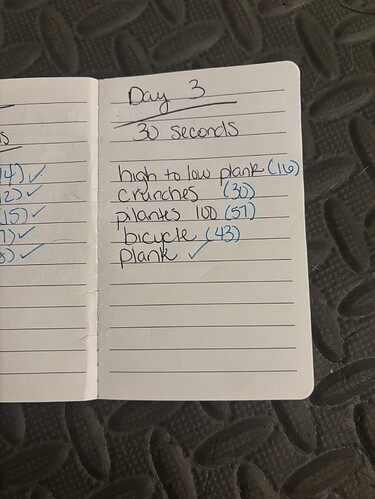 s
14) ✓
12) ✓
15) ✓
7) ✓
8) ✓
Day 3
30 seconds
high to low plank (16)
crunches (30)
pilantes 100 (57)
bicycle (43)
plank ✓